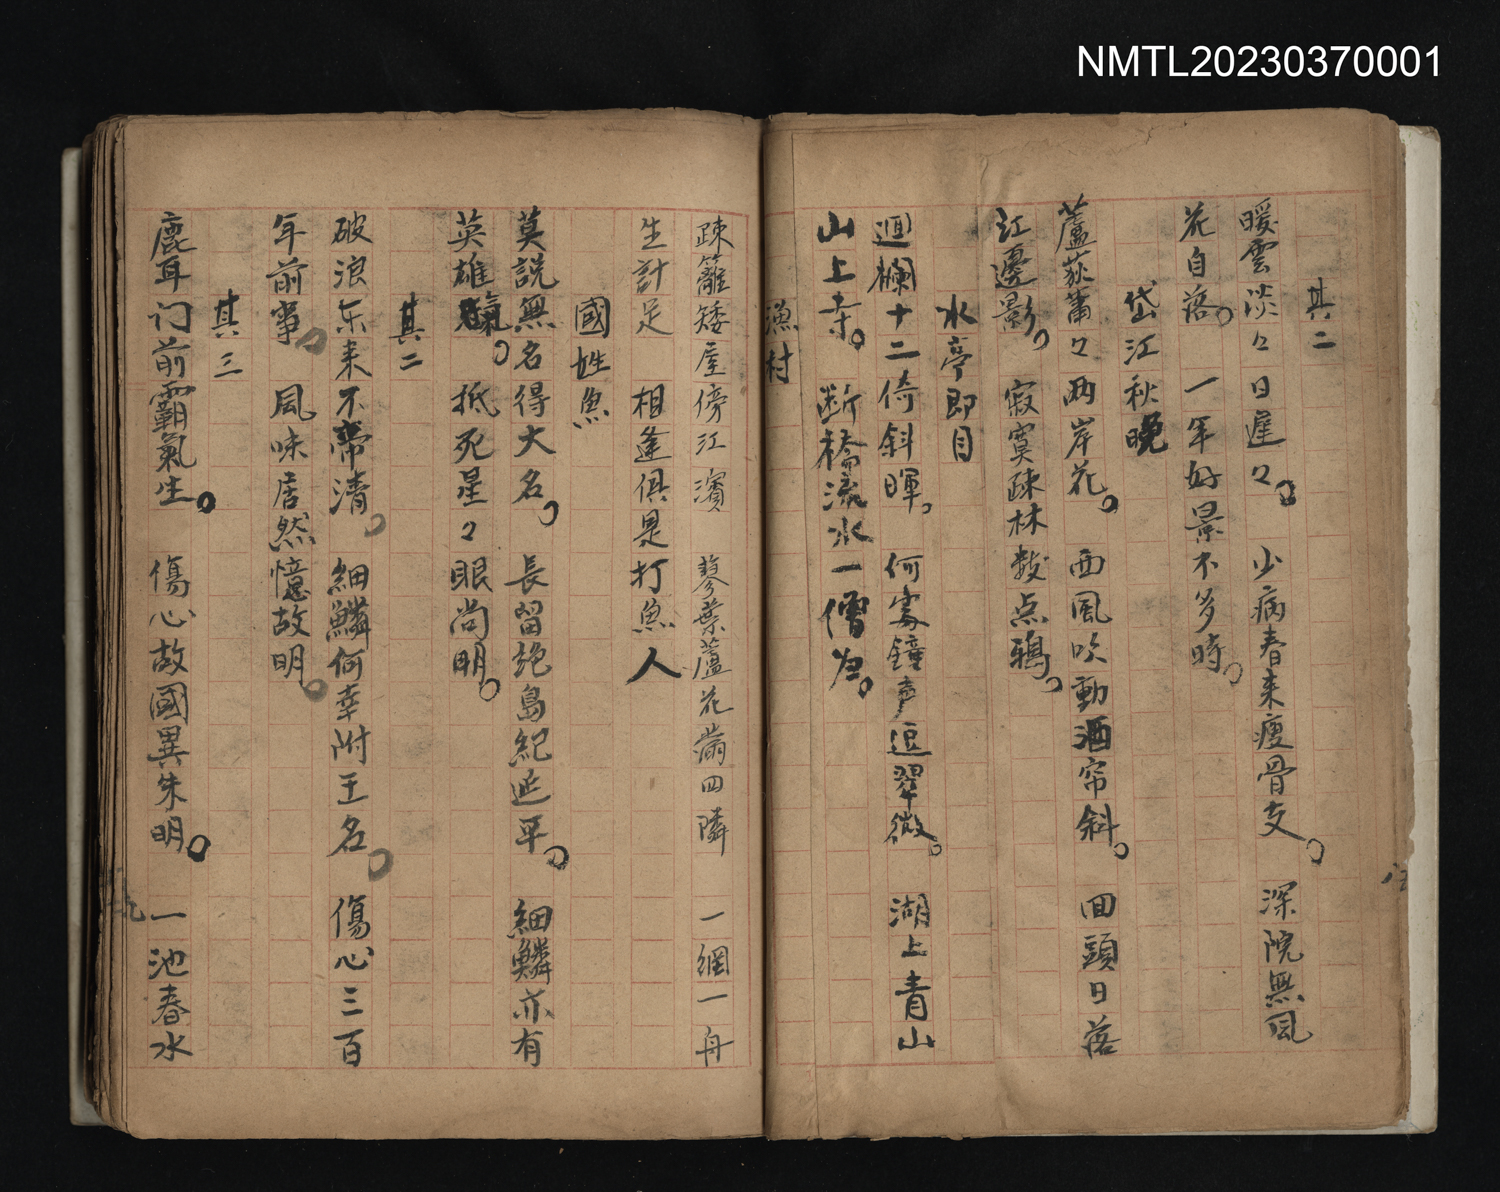 NMTL20230370001
其二
暖雲淡々日遲々。少病春来瘦骨支。深院無風
花自落。一年好景不多時。
岱江秋晚
蘆荻蕭々両岸花。西風吹動酒帘斜。回頭日落
江邊影。寂寞疎林数点鴉。
水亭即目
迴欄十二倚斜暉。何處鐘声逗翠微。湖上青山
山上寺。断橋流水一僧归。
漁村
疎籬矮屋傍江濱 蓼葉蘆花滿四隣 一網一舟
生計足 相逢俱是打魚人
國姓魚
莫説無名得大名。長留絶島紀延平。細鱗亦有
英雄氣。抵死星々眼尚明。
其二
破浪东来不帶清。細鱗何幸附王名。傷心三百
年前事。風味居然憶故明。
其三
鹿耳门前霸氣生。傷心故國異朱明。一池春水